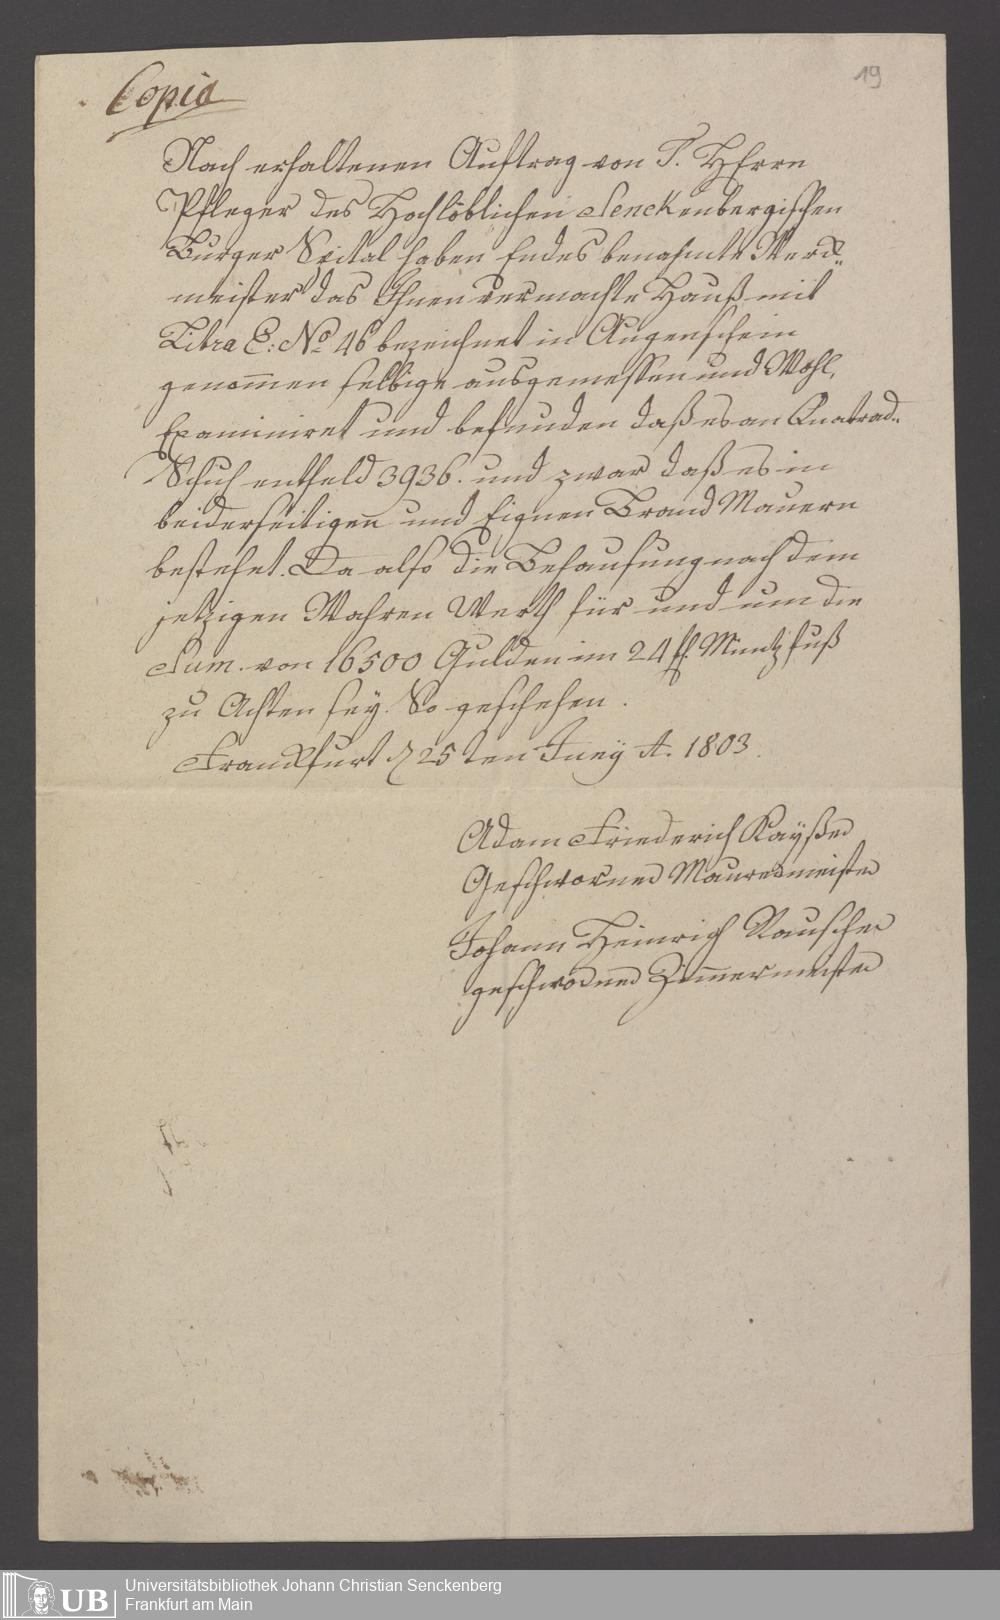 19
Copia
Nach erhaltenen Auftrag von T. HErrn
Pfleger des Hochlöblichen Senckenbergischen
Burger Spital haben Endes benahmte Werck„
meister das Ihnen vermachte Hauß mit
Litra E: No 46 bezeichnet in Augenschein
genommen selbige ausgemessen und Wohl,
Examiniret und befunden daß es an Quatrad„
Schuh entheld 3936. und zwar daß es in
beiderseitigen und Eignen Brand Mauern
bestehet. Da also die Behausung nach dem
jetzigen Wahren Werth für und um die
Sum von 16500 Gulden im 24 fl. Müntzfuß
zu Achten sey. So geschehen.
Franckfurt d 25 ten Juny A. 1803.
Adam Friederich Kayßer
Geschworner Maurermeister
Johann Heinrich Rauscher
geschworner Zimmermeister
UB
Universitätsbibliothek Johann Christian Senckenberg
Frankfurt am Main